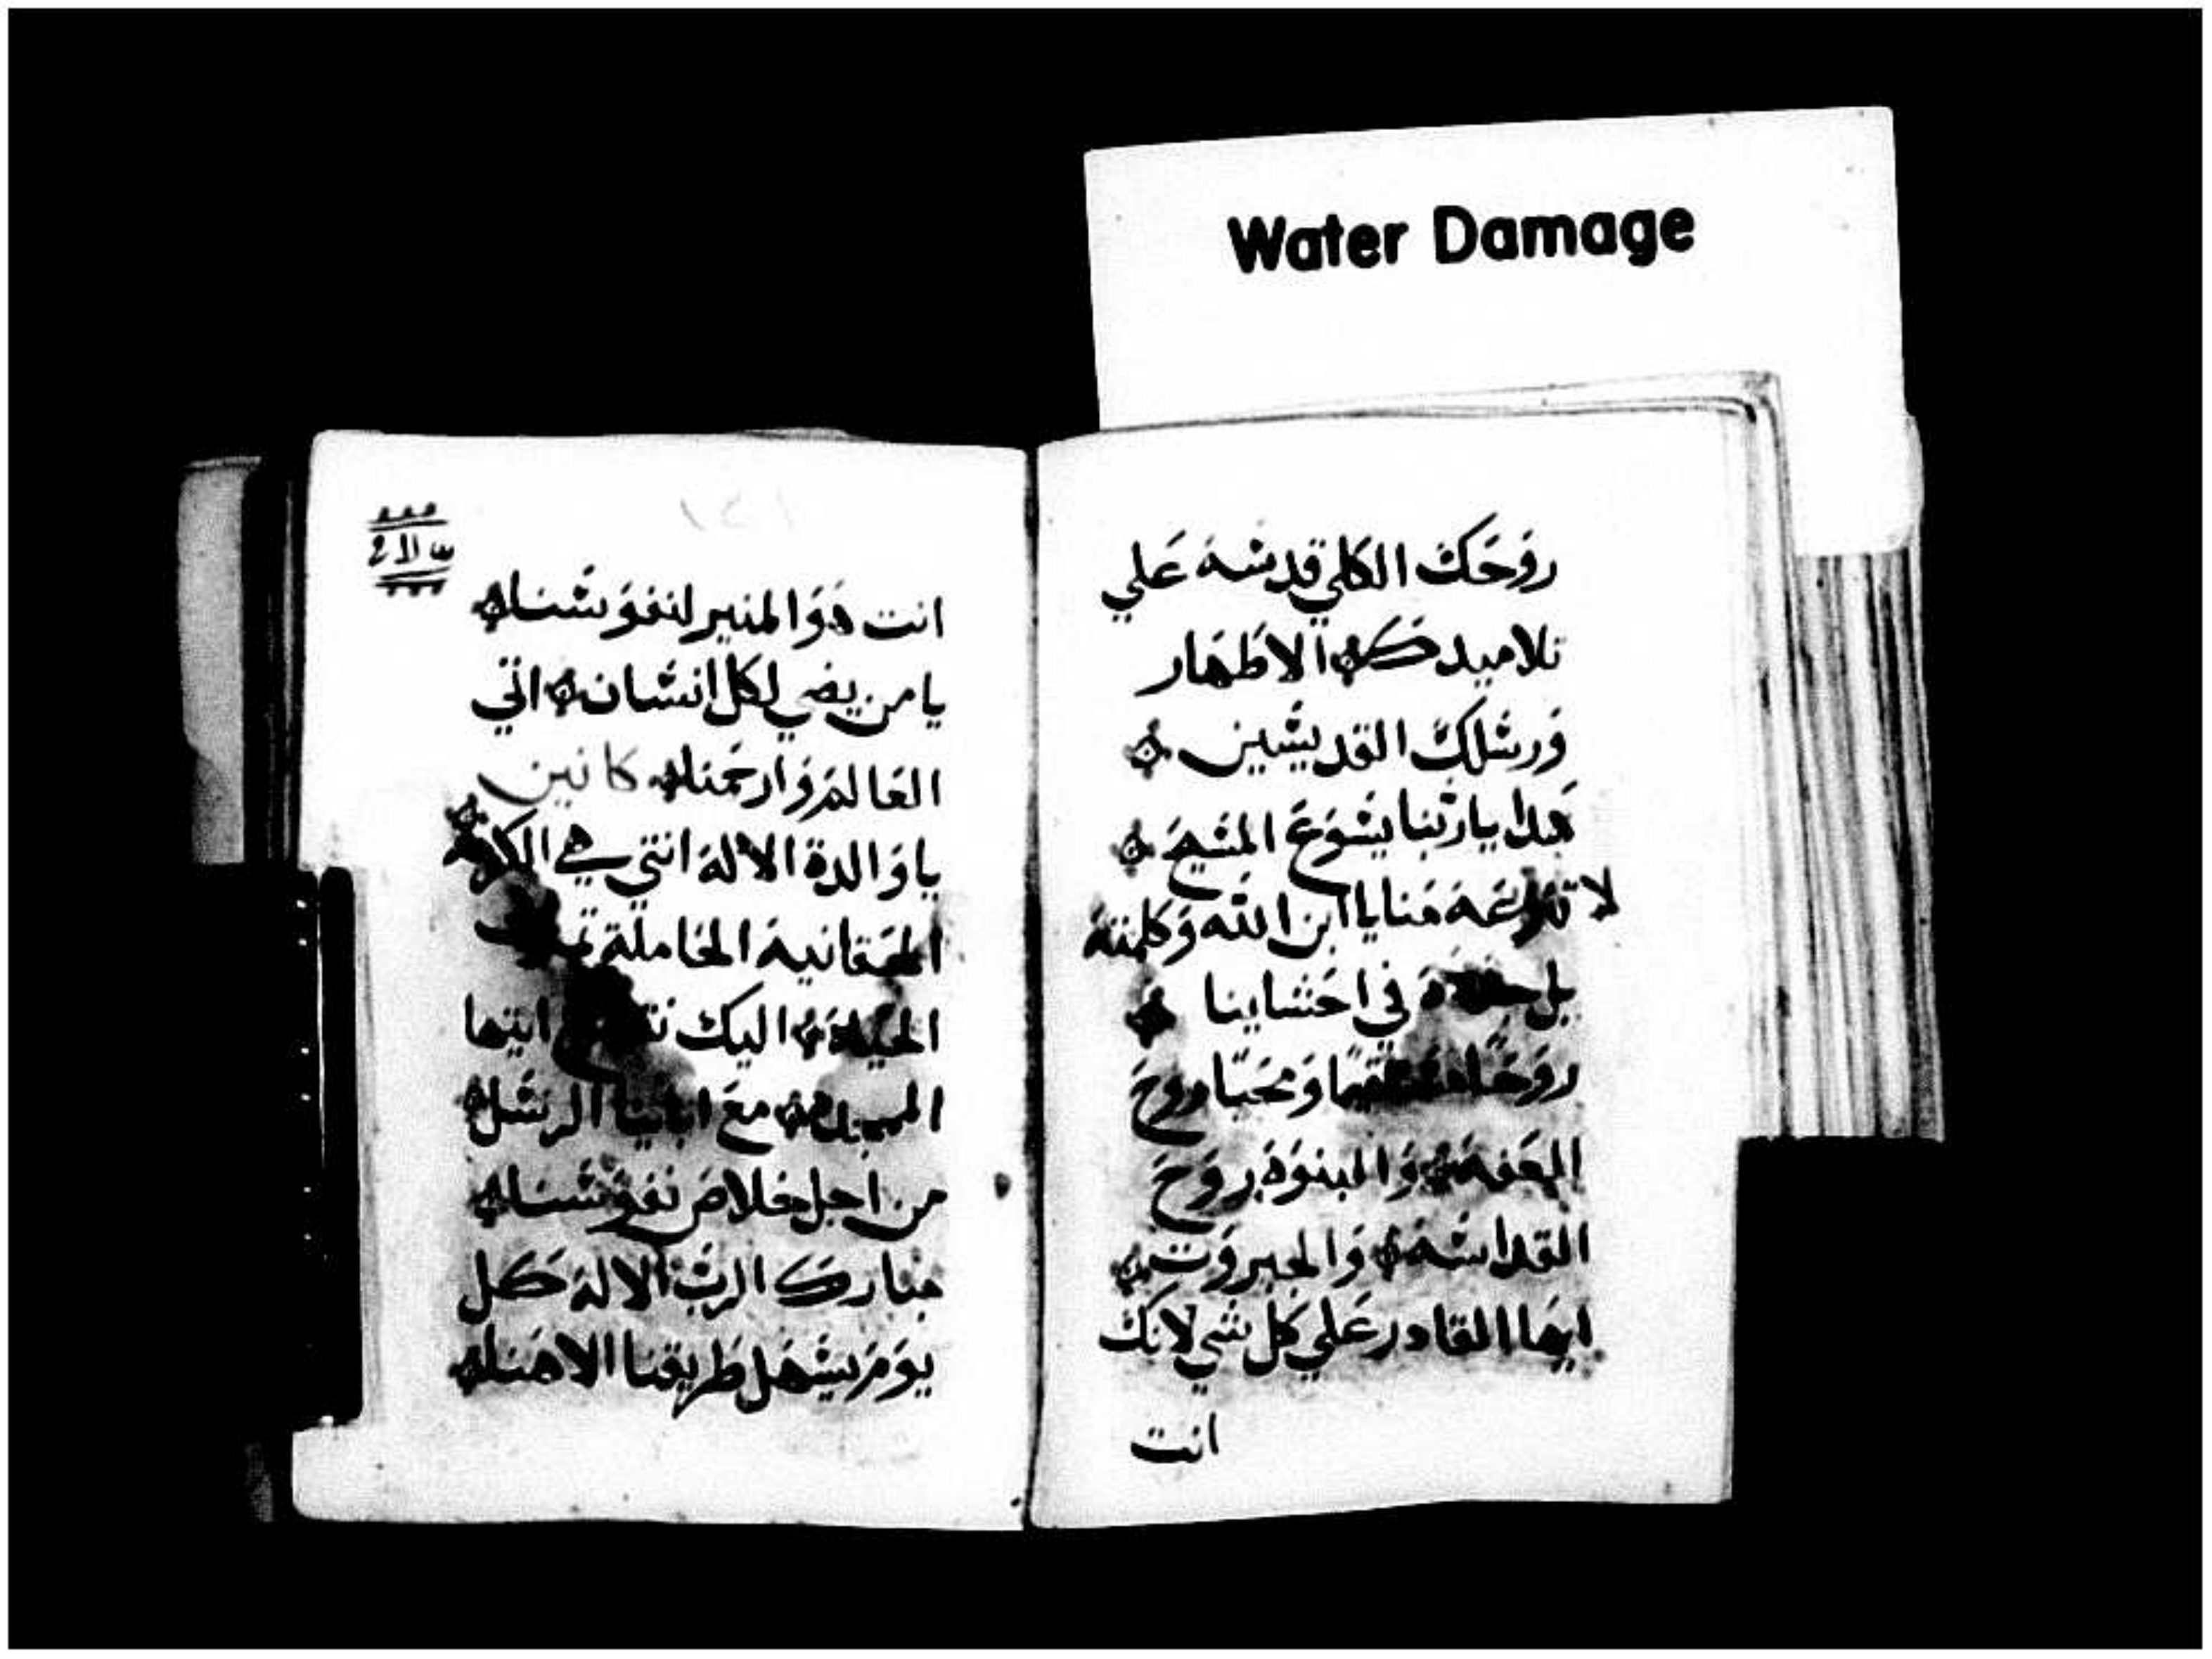 Water Damage
روَحَكَ الكلي قدسَه عَلي
تلاميدكَ الاطهَار
وَرسَلكَ القديسَين
هَدا يارَبنا يسَوَعَ المسَيحَ
لا تنزعَهَ مَنا يا ابن الله وَكلمتهَ
بل جددهَ في احَشاينا
روَحَا مستقيمَا وَمحَيَيا روَحَ
العَفهَ وَالبنوَهَ روَحَ
القداسَهَ وَالجبروَت
ايهَا القادر عَلي كل شي لانكَ
انت
انت هَوَ المنير لنفوَسَنا
يا من يضي لكل انسَان اتي
العَالمَ وَارحَمنا كانين
يا وَالدة الالهَ انتي هي الكرمهَ
الحَقانيهَ الحَاملة
الحَياهَ اليك ايتها
معَ ابايَنا الرسَل
من اجل خلاصَ نفوَسَنا
مبارك الرَبَ الالهَ كل
يوَمَ يسَهَل طريقنا الاهَنا